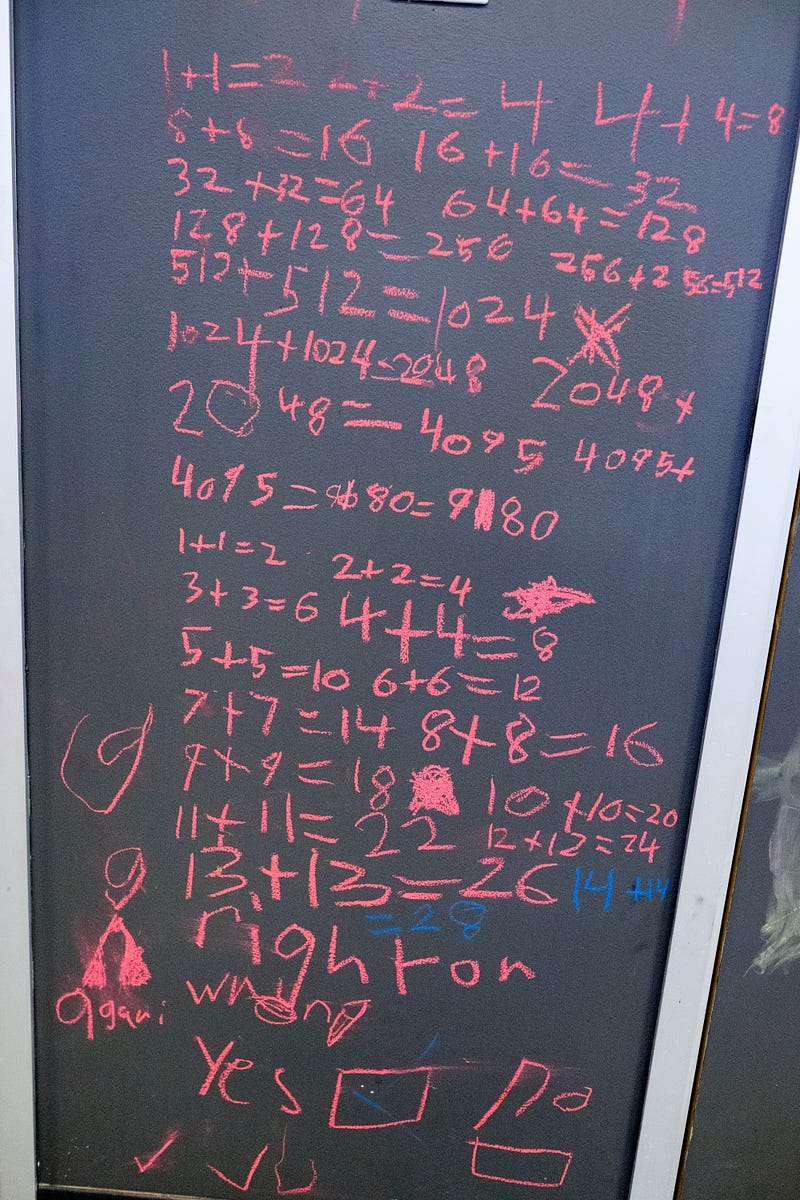 1+1=2 2+2=4 4+4=8
8+8=16 16+16=32
32+32=64 64+64=128
128+128=256 256+256=512
512+512=1024
1024+1024=2048 2048+
2048=4095 4095+
4095=9180=9180
1+1=2 2+2=4
3+3=6 4+4=8
5+5=10 6+6=12
7+7=14 8+8=16
9+9=18 10+10=20
11+11=22 12+12=24
13+13=26 14+14
=28
9
right or
wrong
Yes no